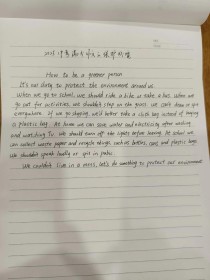 How to be a greener person
It's our duty to protect the environment around us.
When we go to school, we should ride a bike or take a bus. When we
go out for activities, we shouldn't step on the grass. We can't draw or spit
everywhere. If we go shopping, we'd better take a cloth bag instead of buying
a plastic bag. At home we can save water and electricity after washing
and watching TV. We should turn off the lights before leaving. At school we
can collect waste paper and recycle things, such as bottles, cans, and plastic bags.
We shouldn't speak loudly or spit in public.
We couldn't live in a mess. Let's do something to protect our environment.